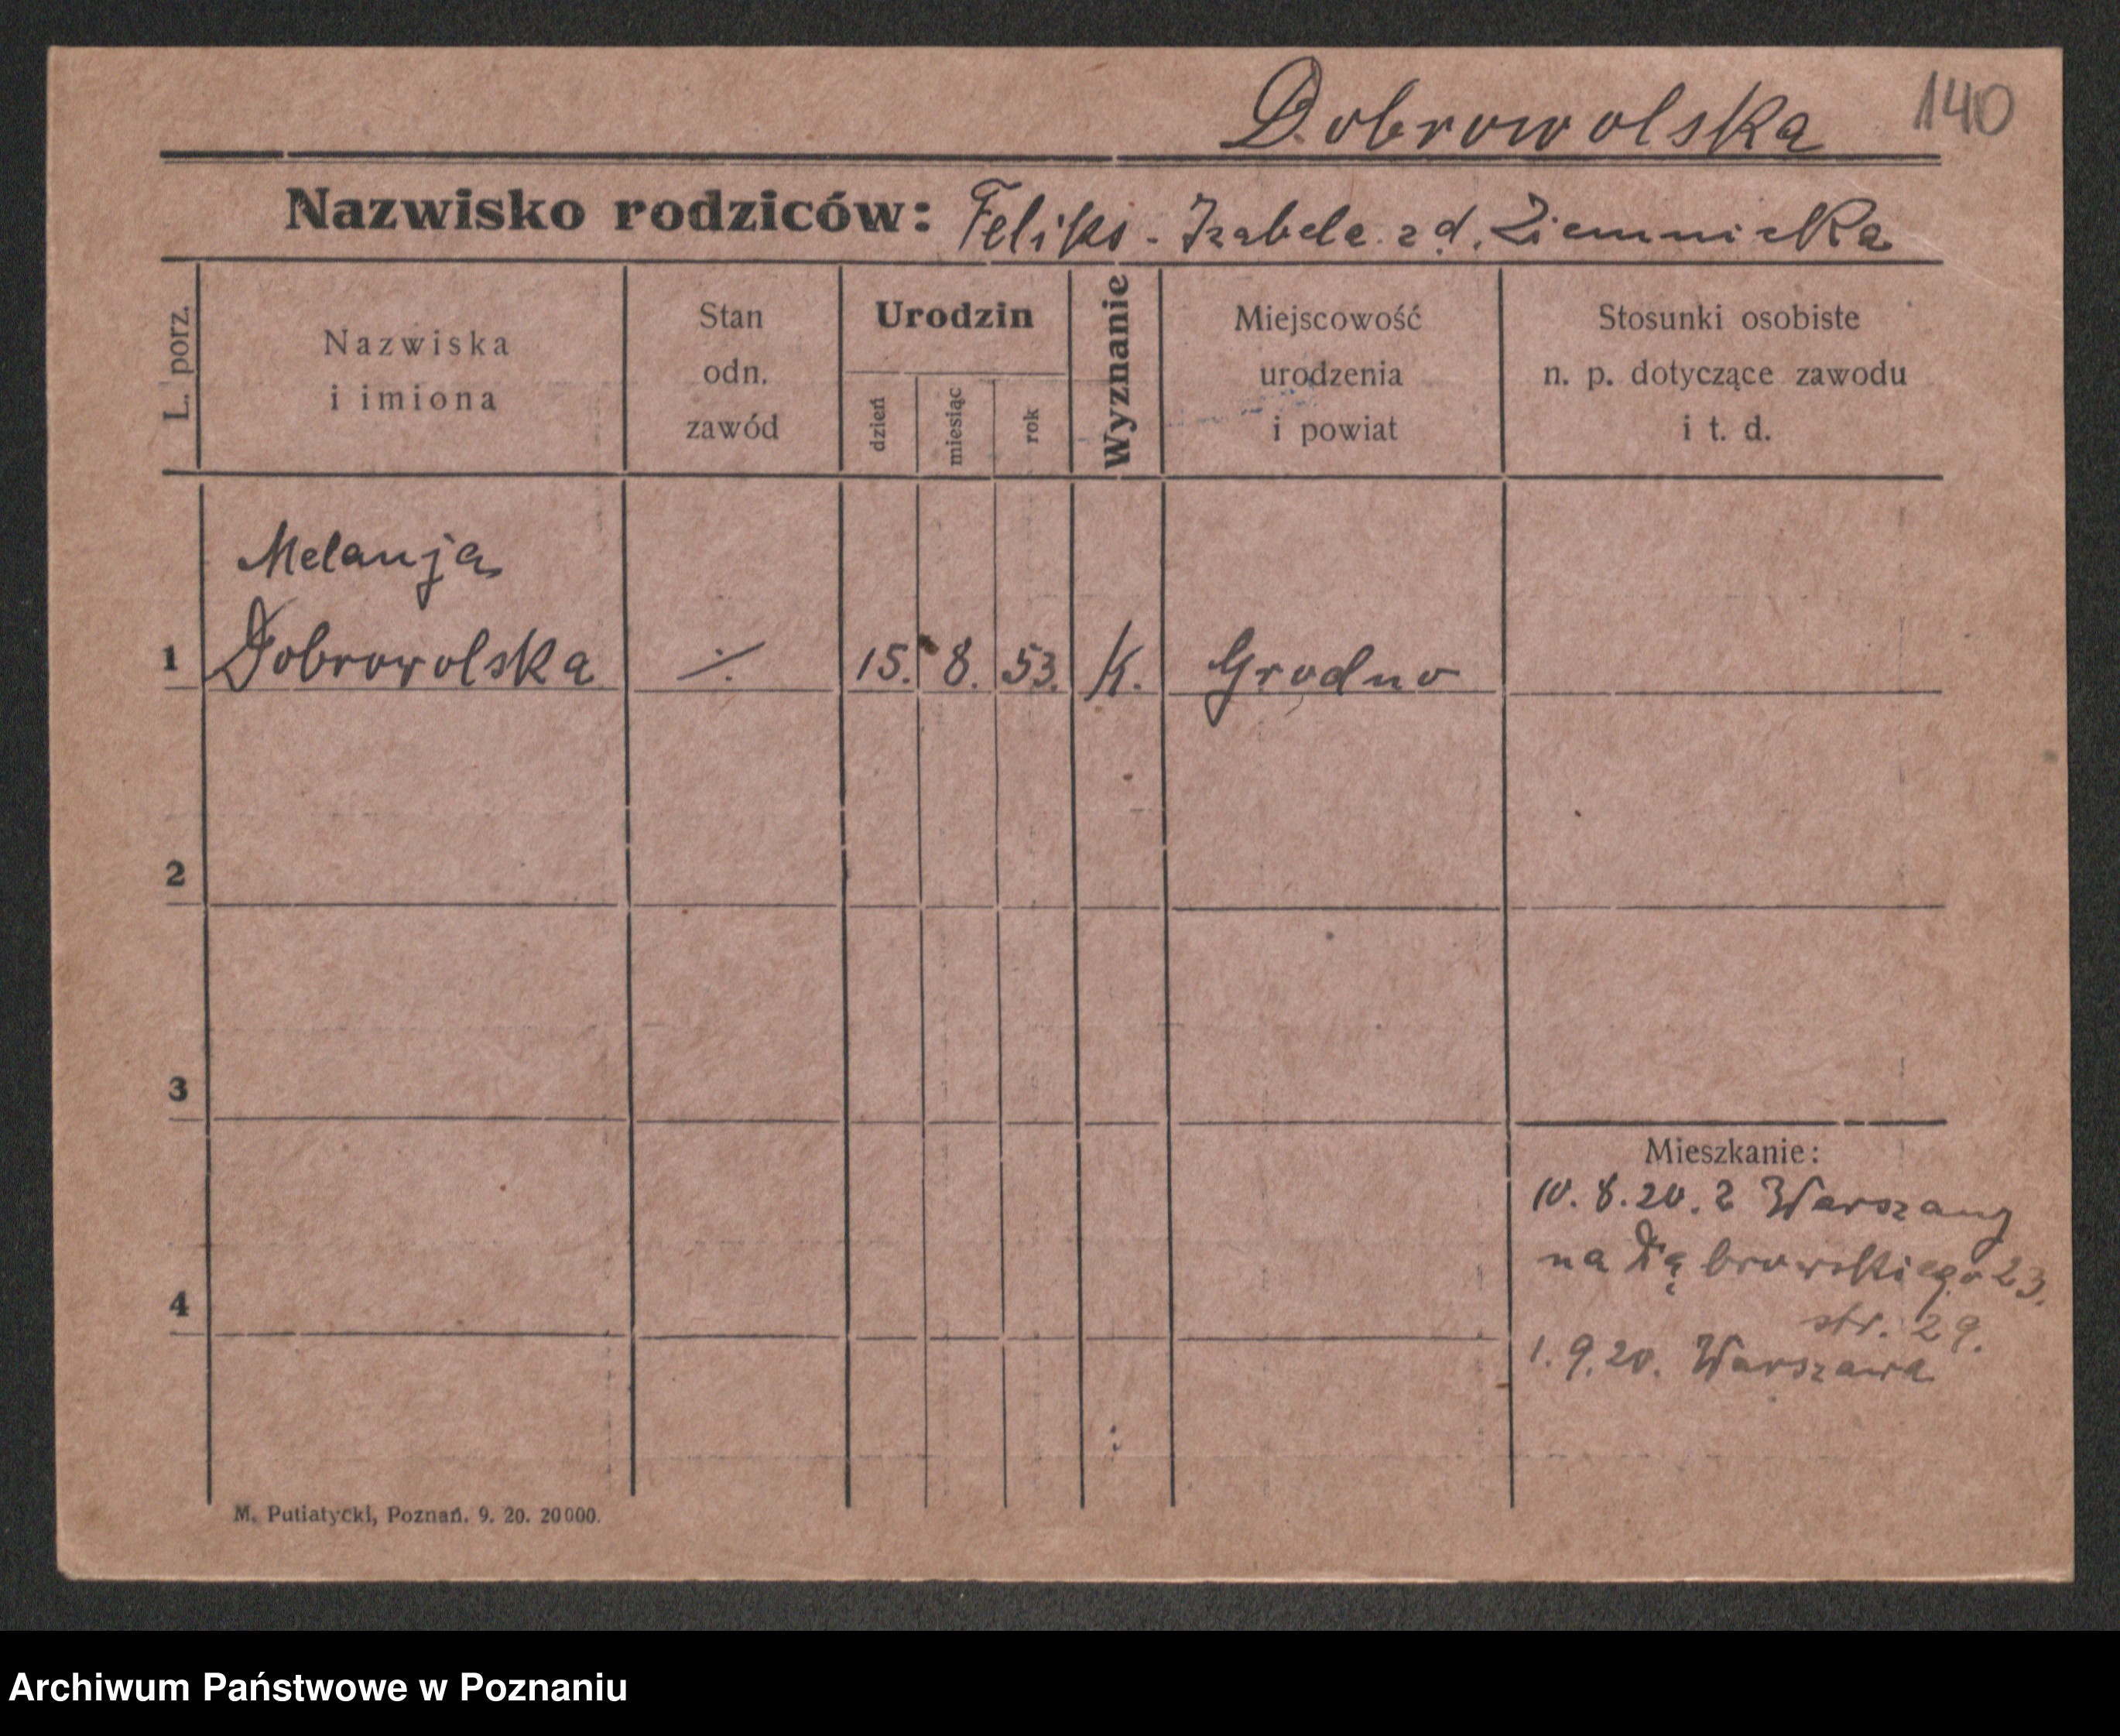 Dobrowolska 140
Nazwisko rodziców: Feliks - Izabela z d. Ziemnicka
L. porz.
Nazwiska
i imiona
Stan
odn.
zawód
Urodzin
dzień
miesiąc
rok
Wyznanie
Miejscowość
urodzenia
i powiat
Stosunki osobiste
n. p. dotyczące zawodu
i t. d.
Melanja
1 Dobrowolska ./. 15. 8. 53. K. Grodno
2
3
4
Mieszkanie:
10. 8. 20. z Warszawy
na Dąbrowskiego 23.
str. 29.
1. 9. 20. Warszawa
M. Putiatycki, Poznań. 9. 20. 20000.
Archiwum Państwowe w Poznaniu